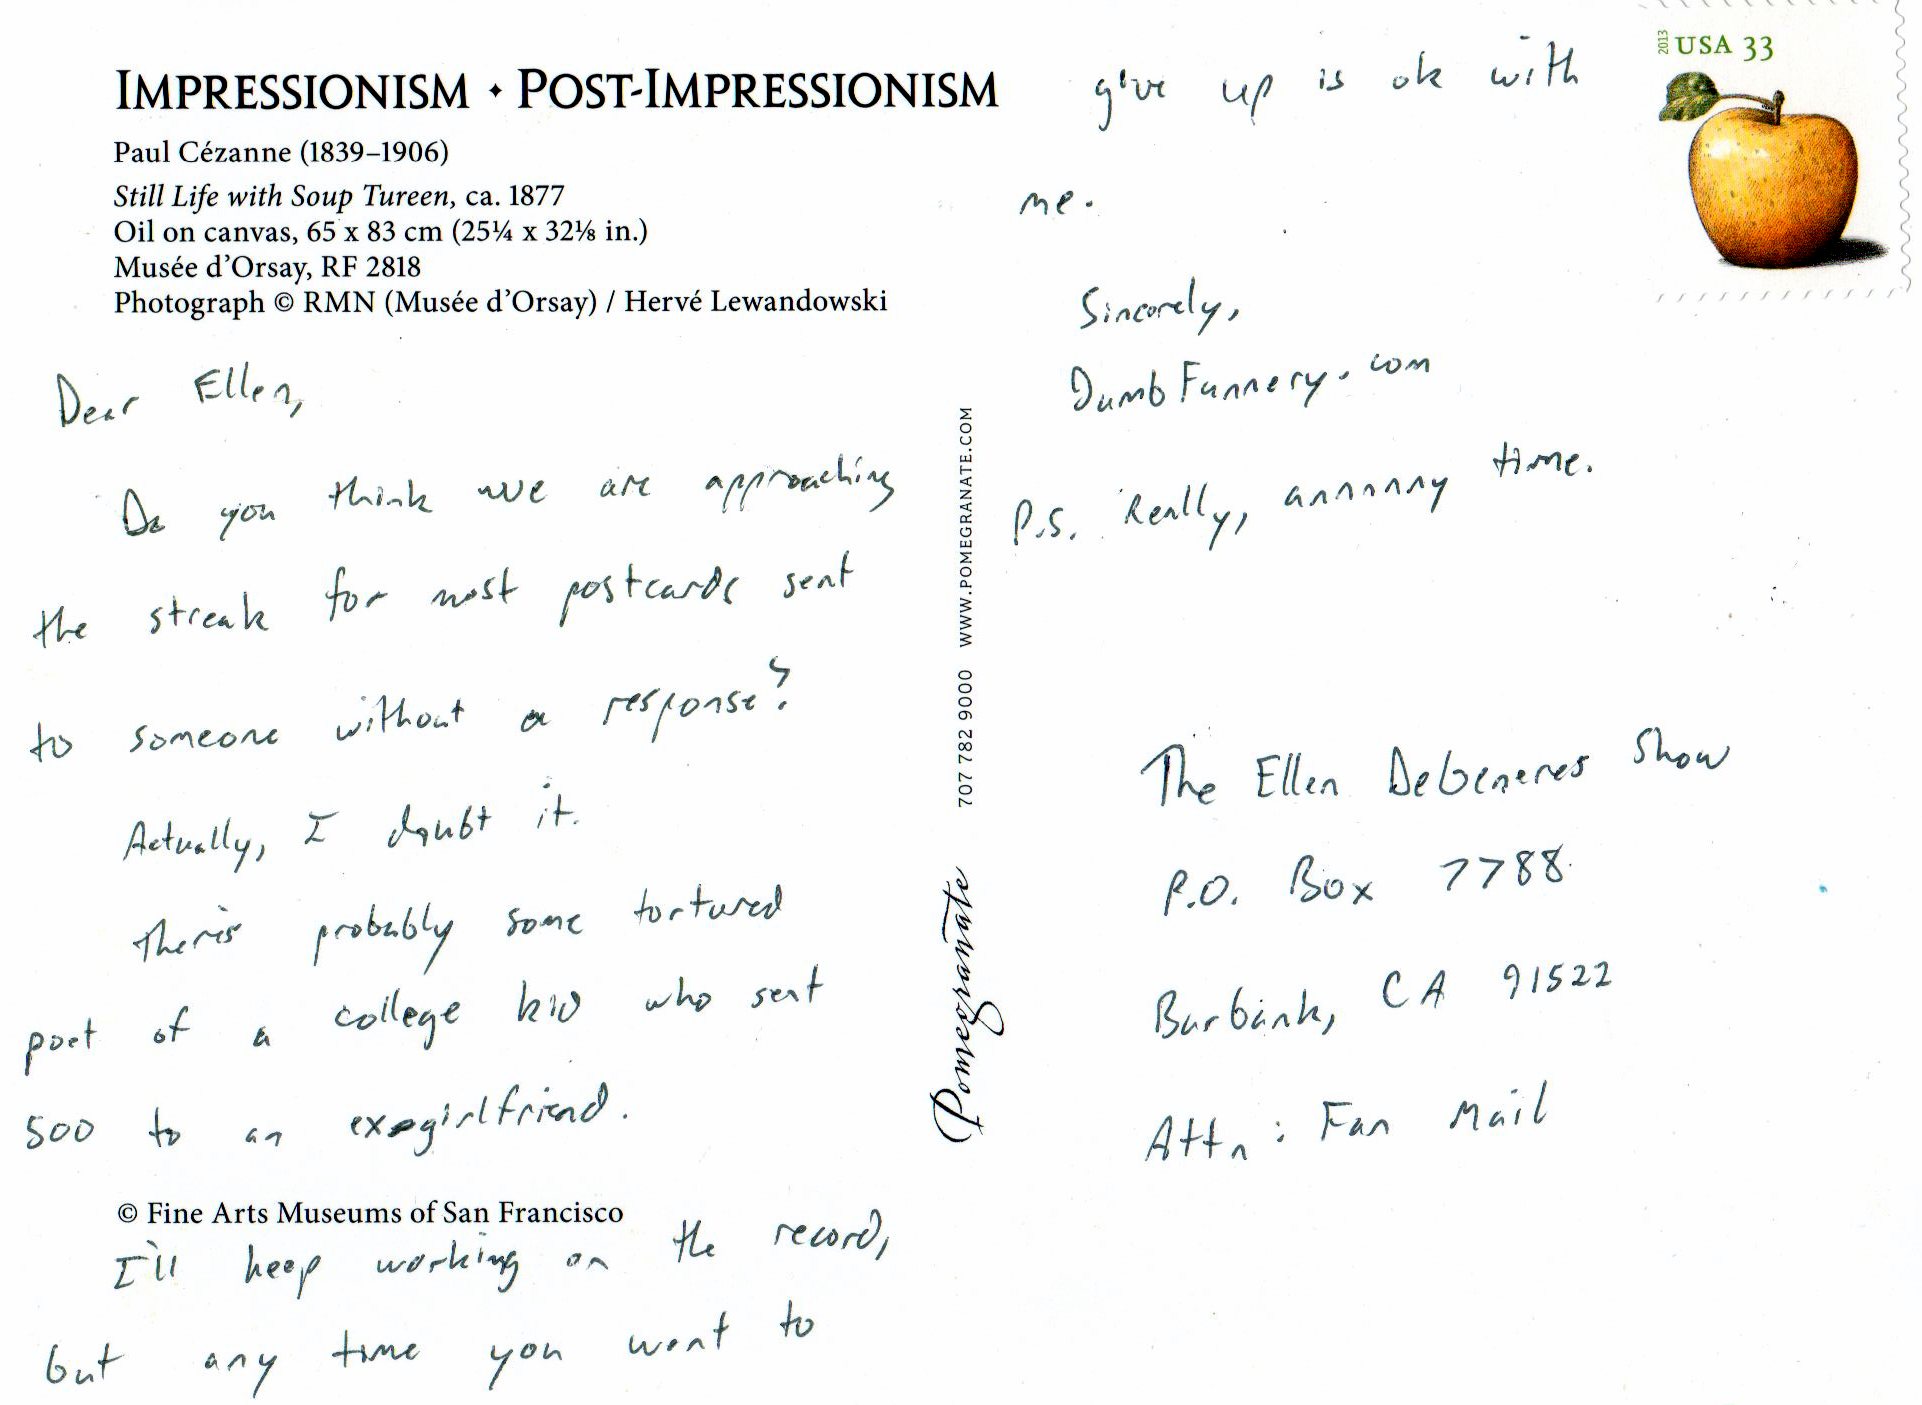 IMPRESSIONISM • POST-IMPRESSIONISM
Paul Cézanne (1839–1906)
Still Life with Soup Tureen, ca. 1877
Oil on canvas, 65 x 83 cm (25¼ x 32⅛ in.)
Musée d'Orsay, RF 2818
Photograph © RMN (Musée d'Orsay) / Hervé Lewandowski
Dear Ellen,
Do you think we are approaching
the streak for most postcards sent
to someone without a response?
Actually, I doubt it.
There's probably some tortured
poet of a college kid who sent
500 to an exgirlfriend.
© Fine Arts Museums of San Francisco
I'll keep working on the record,
but any time you want to
707 782 9000 WWW.POMEGRANATE.COM
Pomegranate
give up is ok with
me.
Sincerely,
DumbFunnery.com
P.S. Really, annnnny time.
2013 USA 33
The Ellen DeGeneres Show
P.O. Box 7788
Burbank, CA 91522
Attn: Fan Mail